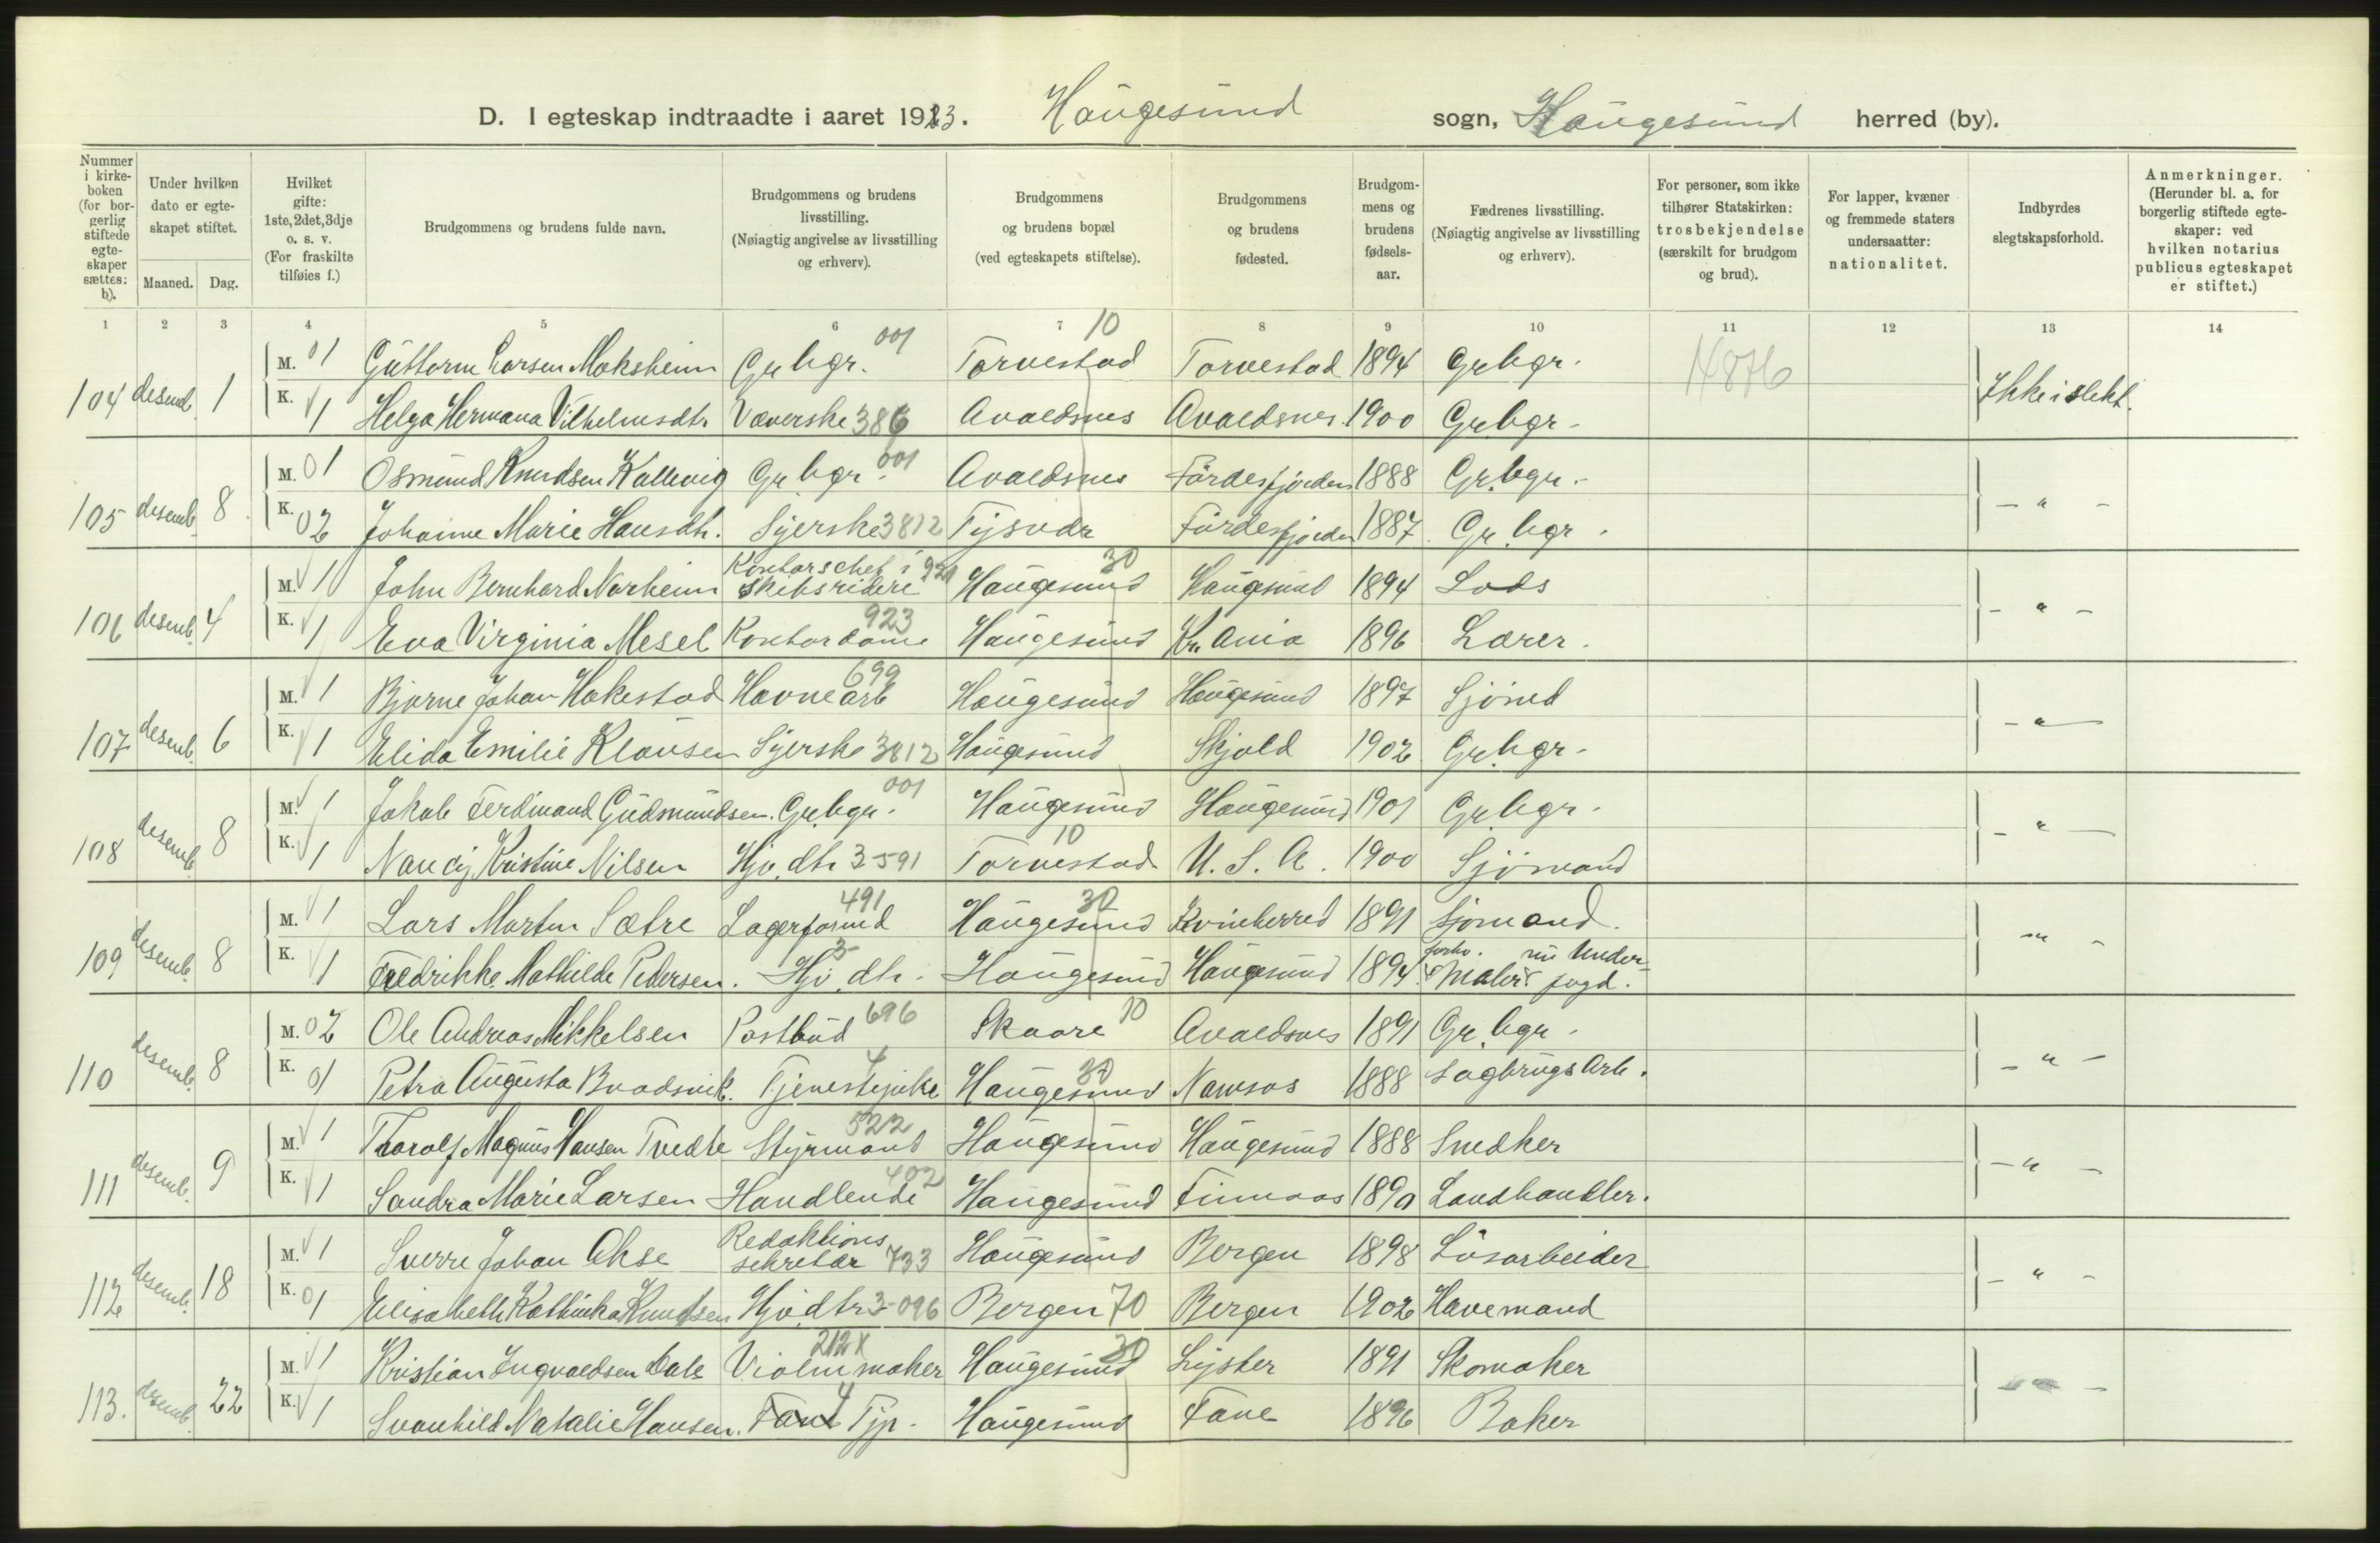 D. I egteskap indtraadte i aaret 1923. Haugesund sogn, Haugesund herred (by).
Nummer i kirke-boken (for bor-gerlig stiftede egte-skaper sættes: b).
Under hvilken dato er egte-skapet stiftet.
Maaned. Dag.
Hvilket gifte: 1ste, 2det, 3dje o. s. v. (For fraskilte tilføies f.)
Brudgommens og brudens fulde navn.
Brudgommens og brudens livsstilling. (Nøiagtig angivelse av livsstilling og erhverv).
Brudgommens og brudens bopæl (ved egteskapets stiftelse).
Brudgommens og brudens fødested.
Brudgom-mens og brudens fødsels-aar.
Fædrenes livsstilling. (Nøiagtig angivelse av livsstilling og erhverv).
For personer, som ikke tilhører Statskirken: trosbekjendelse (særskilt for brudgom og brud).
For lapper, kvæner og fremmede staters undersaatter: nationalitet.
Indbyrdes slegtskapsforhold.
Anmerkninger. (Herunder bl. a. for borgerlig stiftede egte-skaper: ved hvilken notarius publicus egteskapet er stiftet.)
1 2 3 4 5 6 7 8 9 10 11 12 13 14
104 desemb. 1 M. 01 Guttorm Larsen Moksheim Grbgr. 001 Torvestad 10 Torvestad 1894 Grbgr. Ikke i slekt.
K. 1 Helga Hermana Vilhelmsdtr. Væverske 386 Avaldsnes Avaldsnes 1900 Grbgr.
105 desemb. 8 M. 01 Osmund Knudsen Kallevig Gr.bgr. 001 Avaldsnes Førdesfjorden 1888 Gr.bgr. - " -
K. 02 Johanne Marie Hansdtr. Syerske 3812 Tysvær Førdesfjorden 1887 Gr.bgr.
106 desemb. 4 M. 1 John Bernhard Norheim Kontorschef i skibsrideri 921 Haugesund 30 Haugesund 1894 Lods - " -
K. 1 Eva Virginia Mesel Kontordame 923 Haugesund Kr.ania 1896 Lærer.
107 desemb. 6 M. 1 Bjarne Johan Hakestad Havnearb 699 Haugesund Haugesund 1897 Sjømd - " -
K. 1 Elida Emilie Klausen Syerske 3812 Haugesund Skjold 1902 Gr.bgr.
108 desemb. 8 M. 1 Jakob Ferdinand Gudmundsen. Gr.bgr. 001 Haugesund Haugesund 1901 Gr.bgr. - " -
K. 1 Nancy Kristine Nilsen Hjv. dtr 3-591 Torvestad 10 U. S. A. 1900 Sjømand
109 desemb. 8 M. 1 Lars Martin Sætre Lagerformd 491 Haugesund 30 Kvinherred 1891 Sjømand. - " -
K. 1 Fredrikke Mathilde Pedersen. Hjv. dtr. 3- Haugesund Haugesund 1894 Maler nu Under-fogd.
110 desemb. 8 M. 02 Ole Andreas Mikkelsen Postbud 696 Skaare 10 Avaldsnes 1891 Gr.bgr. - " -
K. 01 Petra Augusta Tjenestepike 4 Haugesund 30 Namsos 1888 Sagbrugsarb.
111 desemb. 9 M. 1 Thorolf Magnus Hansen Tvedte Styrmand 522 Haugesund Haugesund 1888 Snedker - " -
K. 1 Sandra Marie Larsen Handlende 402 Haugesund Finnaas 1890 Landhandler.
112 desemb. 18 M. 1 Sverre Johan Akse Redaktions sekretær 733 Haugesund Bergen 1898 Løsarbeider - " -
K. 01 Elisabeth Kathinka Knudsen Hjv. dtr 3-096 Bergen 70 Bergen 1902 Havemand
113. desemb. 22 M. 1 Kristian Ingvaldsen Dale Violinmaker 212x Haugesund 30 Lyster 1891 Skomaker - " -
K. 1 Svanhild Natalie Hansen. Tjp. 4 Haugesund Fane 1896 Baker